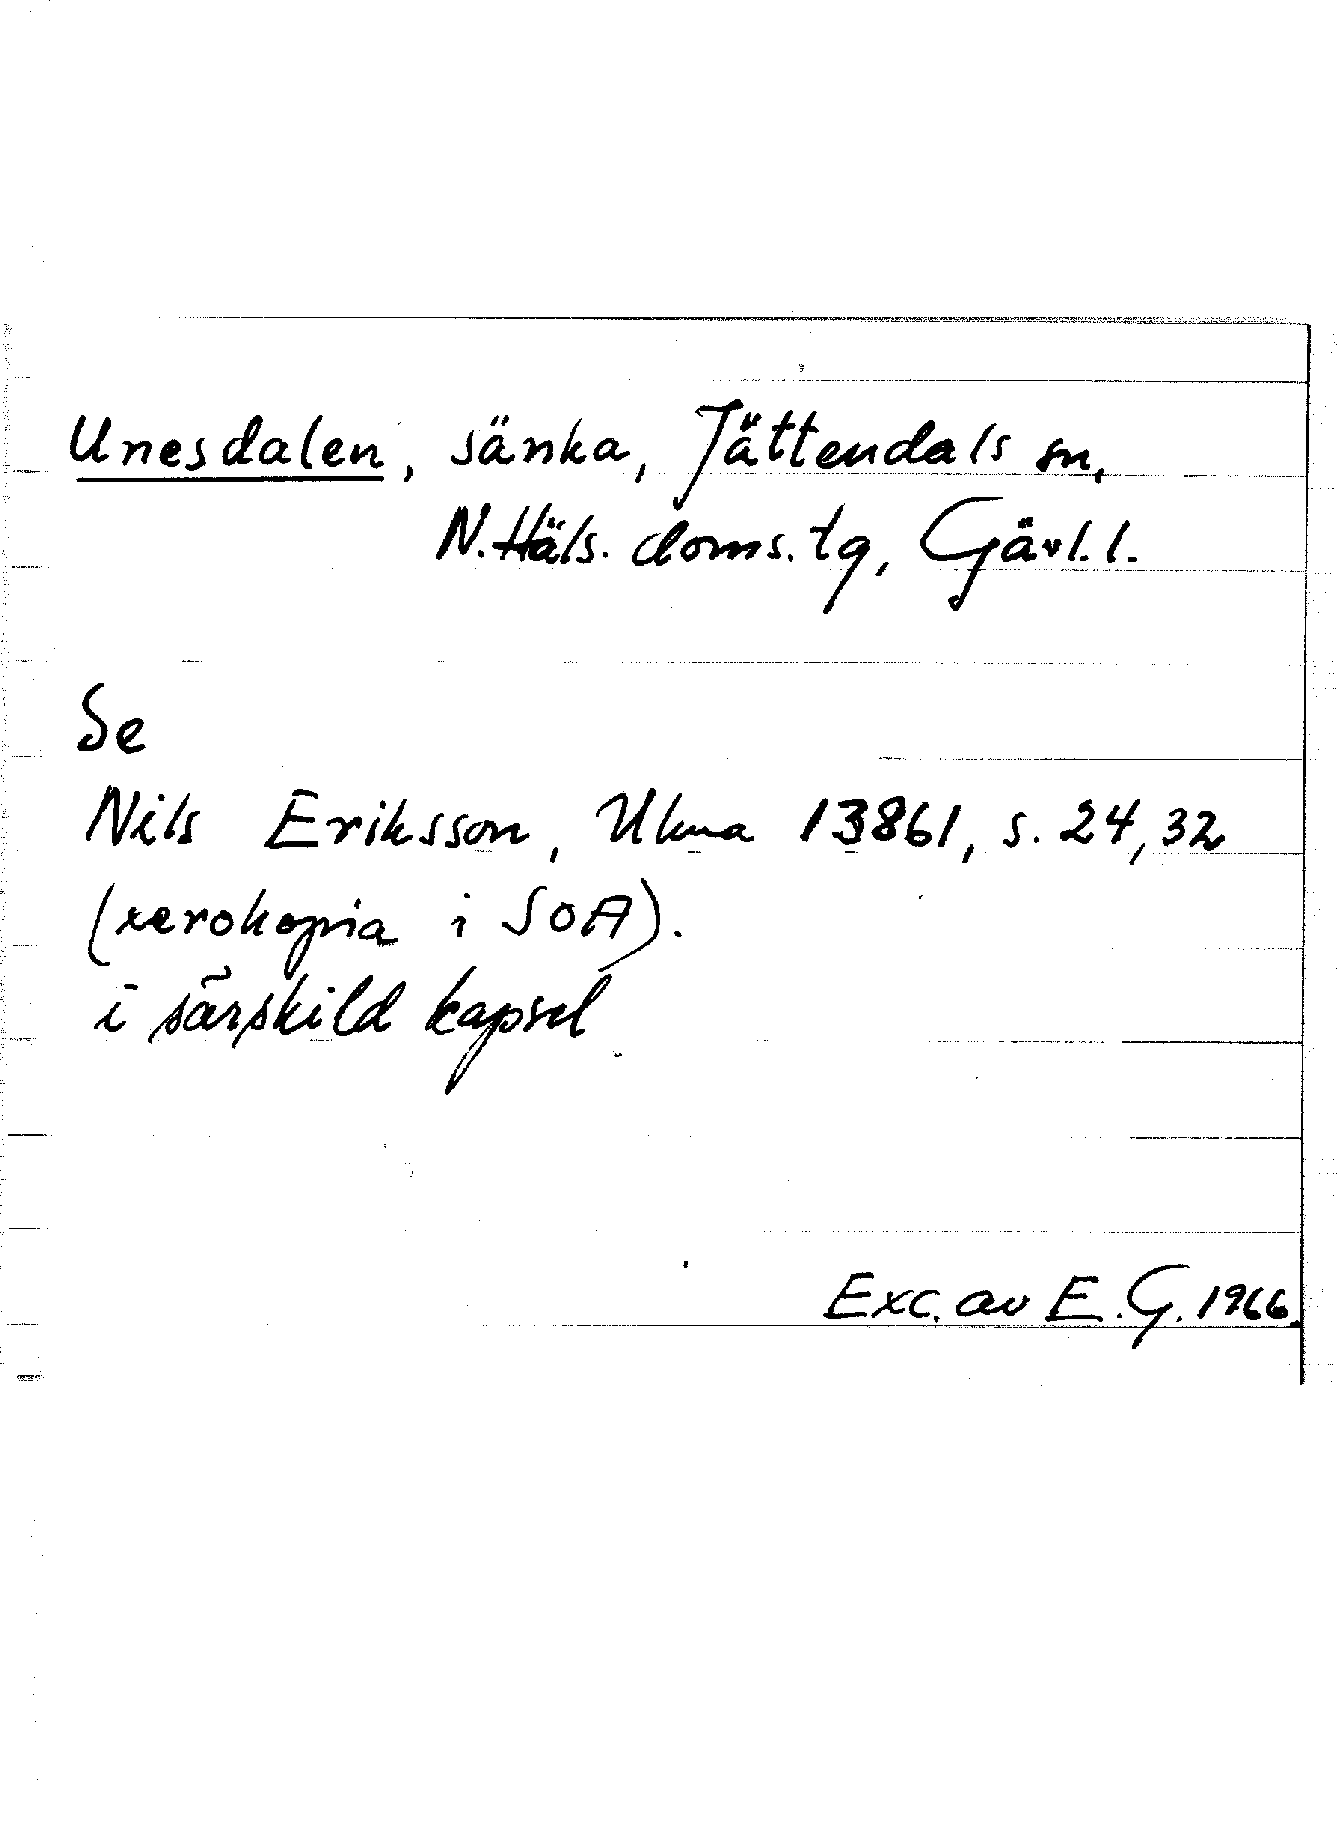 Unesdalen, sänka, Jättendals sn,
N. Häls. doms. tg, Gävl. l.
Se
Nils Eriksson, Ukna 13861, s. 24, 32
(xerokopia i SOA).
i särskild kapsel
Exc. av E. G. 1966.